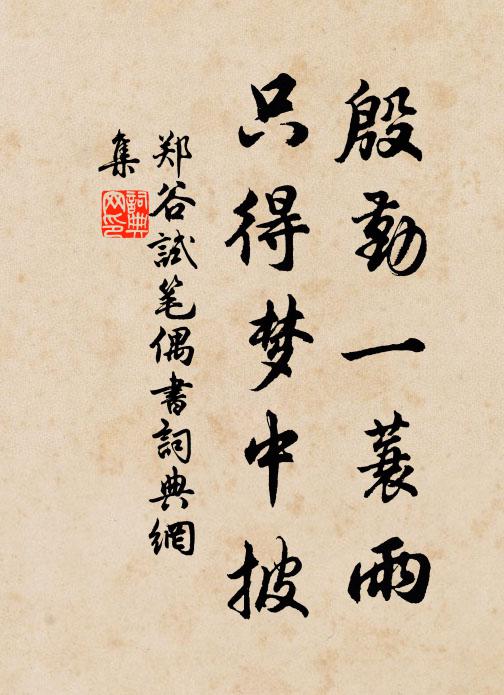 殷勤一蓑雨
只得梦中披
郑谷試笔偶書詞典網
集
詞典
网印